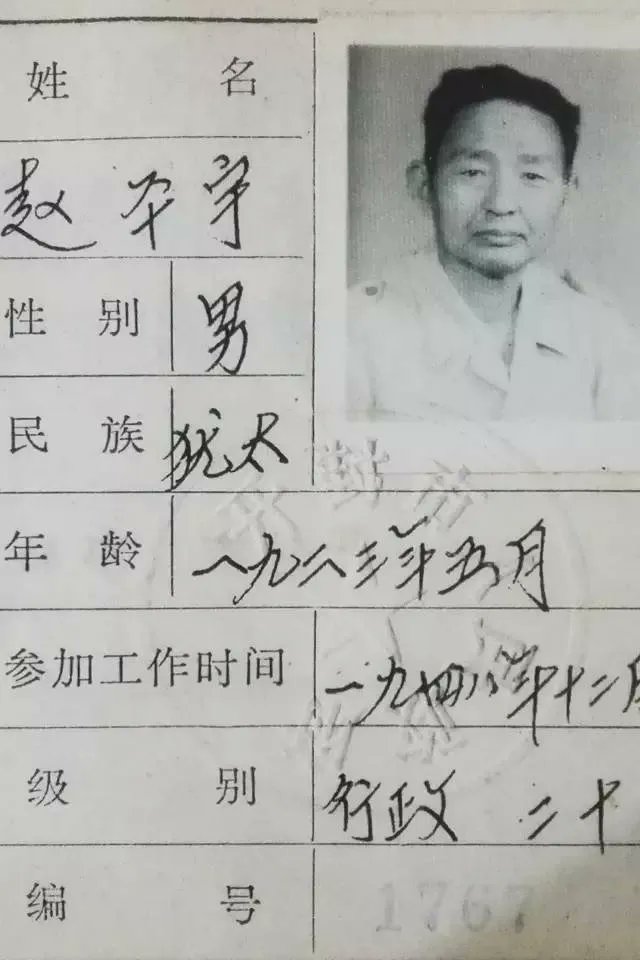 姓 名
赵平宇
性 别 男
民 族 犹太
年 龄 一九二三年五月
参加工作时间 一九四八年十二月
级 别 行政 二十
编 号 1767
开封市